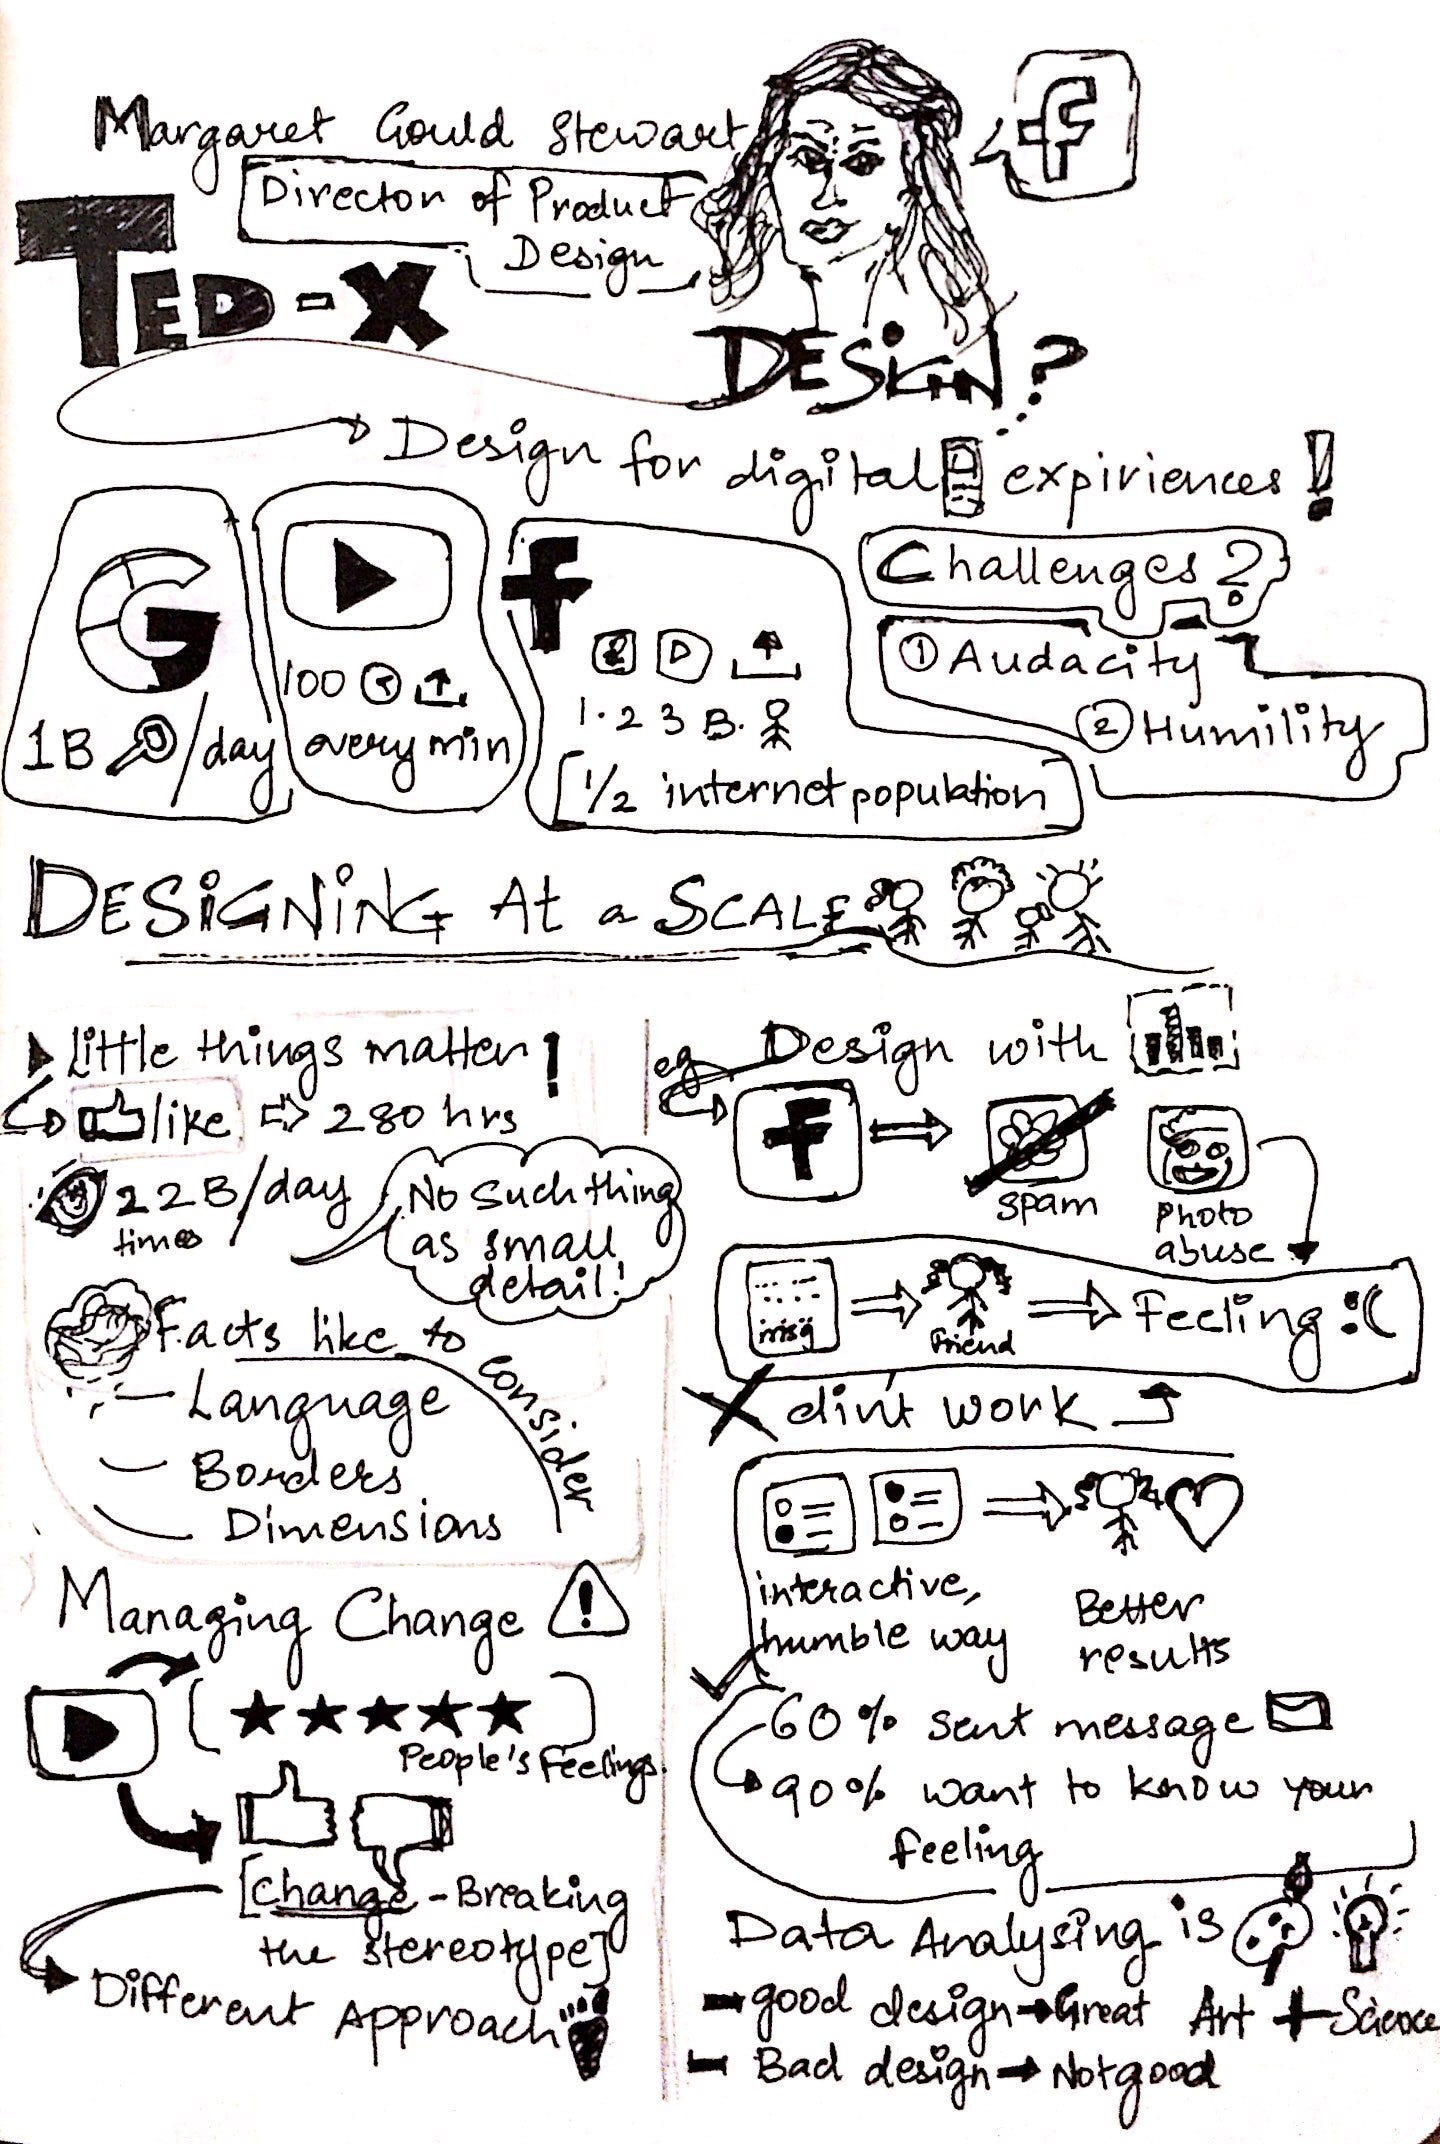 Margaret Gould Stewart
f
Director of Product
Design
TED-X
DESIGN?
Design for digital expiriences!
G
1B /day
100
every min
f
1.23 B.
[1/2 internet population]
Challenges?
① Audacity
② Humility
DESIGNING At a SCALE
Little things matter!
/like ⇨ 280 hrs
22B/day
times
No such thing
as small
detail!
Facts like to consider
- Language
- Borders
- Dimensions
Managing Change !
[★★★★★]
People's Feelings.
[Change - Breaking
the stereotype]
Different Approach
Design with
eg
f
spam
photo
abuse
msg
Friend
Feeling :(
X din't work
interactive,
humble way
Better
results
60% sent message
90% want to know your
feeling
Data Analysing is
- good design → Great Art + Science
- Bad design → Not good